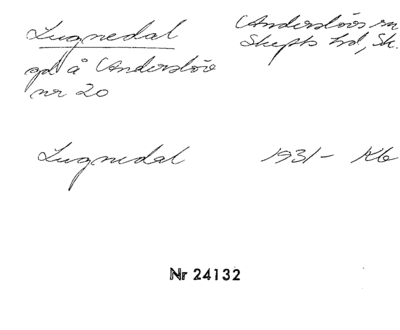 Lugnedal
Anderslövs sn
Skytts hd, Sk.
gd å Anderslöv
nr 20
Lugnedal 1931- Kb
Nr 24132